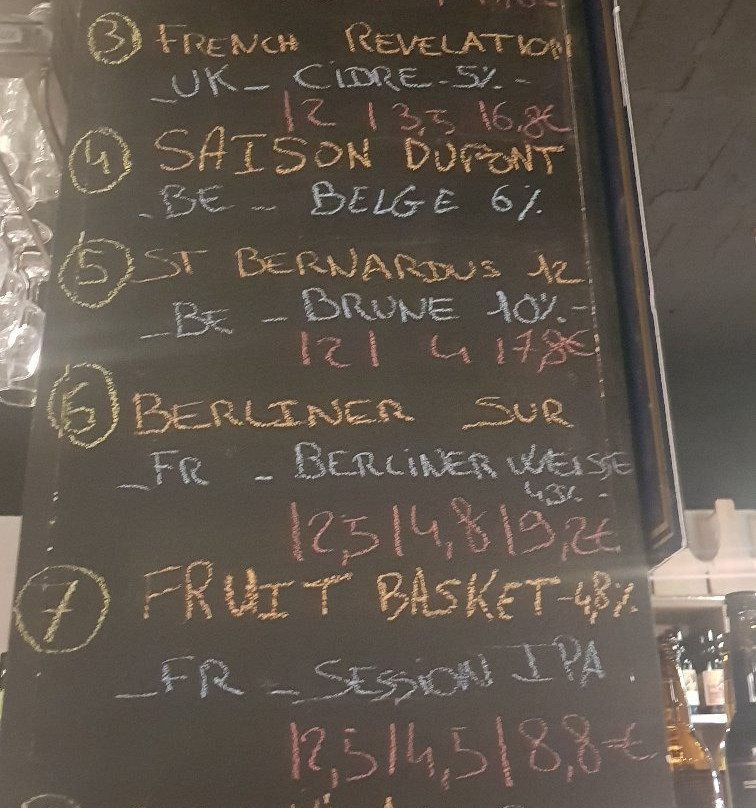 3 FRENCH REVELATION
_UK_ CIDRE_5% -
|2 |3,5 |6,8€
4 SAISON DUPONT
_BE _ BELGE 6%
5 ST BERNARDUS 12
_BE _ BRUNE 10% -
|2| 4 |7,8€
6 BERLINER SUR
_FR _ BERLINER WEISSE
4,5% -
|2,5|4,8|9,2€
7 FRUIT BASKET-4,8%
_FR _ SESSION IPA .
|2,5|4,5|8,8€